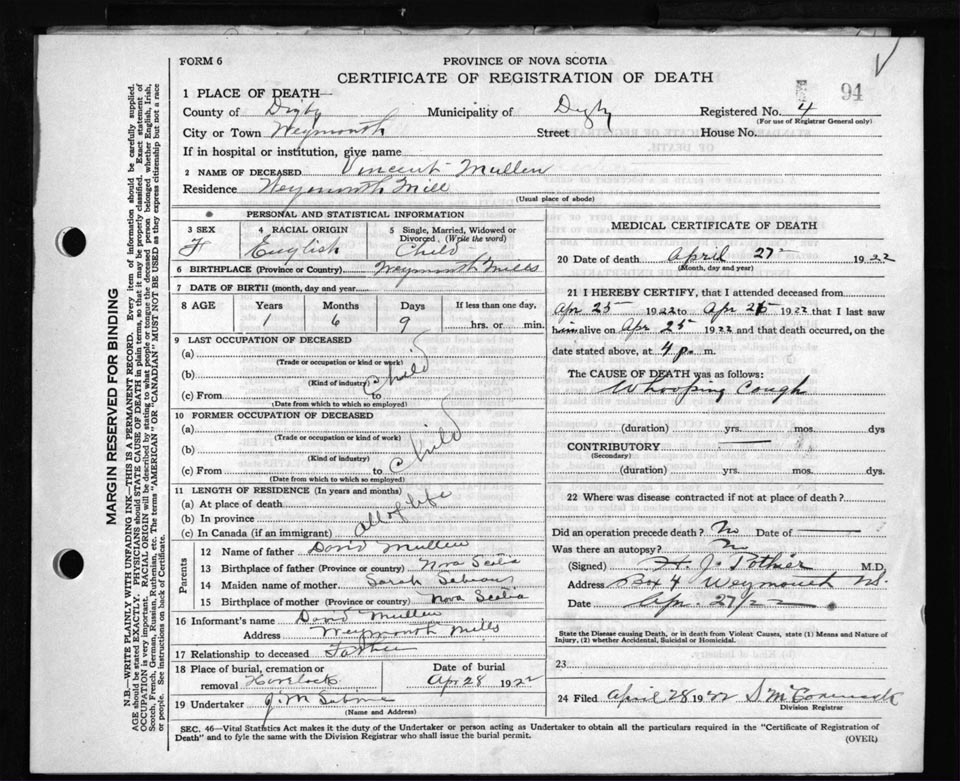 FORM 6
PROVINCE OF NOVA SCOTIA
CERTIFICATE OF REGISTRATION OF DEATH
94
1 PLACE OF DEATH—
County of Digby Municipality of Digby Registered No. 4
(For use of Registrar General only)
City or Town Weymouth Street House No.
If in hospital or institution, give name
2 NAME OF DECEASED Vincent Mullen
Residence Weymouth Mill
(Usual place of abode)
PERSONAL AND STATISTICAL INFORMATION
3 SEX 4 RACIAL ORIGIN 5 Single, Married, Widowed or Divorced, (Write the word)
F English Child
6 BIRTHPLACE (Province or Country) Weymouth Mills
7 DATE OF BIRTH (month, day and year)
8 AGE Years Months Days If less than one day,
1 6 9 hrs. or min.
9 LAST OCCUPATION OF DECEASED
(a)
(Trade or occupation or kind or work)
(b)
(Kind of industry)
Child
(c) From to
(Date from which to which so employed)
10 FORMER OCCUPATION OF DECEASED
(a)
(Trade or occupation or kind of work)
(b)
(Kind of industry)
(c) From to Child
(Date from which to which so employed)
11 LENGTH OF RESIDENCE (In years and months)
(a) At place of death
(b) In province
(c) In Canada (if an immigrant) all of life
Parents
12 Name of father David Mullen
13 Birthplace of father (Province or country) Nova Scotia
14 Maiden name of mother Sarah
15 Birthplace of mother (Province or country) Nova Scotia
16 Informant's name David Mullen
Address Weymouth Mills
17 Relationship to deceased Father
18 Place of burial, cremation or removal Havelock
Date of burial Apr 28 1922
19 Undertaker J. M Sabine
(Name and Address)
MEDICAL CERTIFICATE OF DEATH
20 Date of death April 27 1922
(Month, day and year)
21 I HEREBY CERTIFY, that I attended deceased from
Apr 25 1922 to Apr 25 1922 that I last saw
him alive on Apr 25 1922 and that death occurred, on the
date stated above, at 4 p. m.
The CAUSE OF DEATH was as follows:
Whooping Cough
(duration) yrs. mos. dys
CONTRIBUTORY
(Secondary)
(duration) yrs. mos. dys.
22 Where was disease contracted if not at place of death?
Did an operation precede death? No Date of
Was there an autopsy? No
(Signed) H. J. Pothier M.D.
Address Box 4 Weymouth NS.
Date Apr. 27/22
State the Disease causing Death, or in death from Violent Causes, state (1) Means and Nature of
Injury, (2) whether Accidental, Suicidal or Homicidal.
23
24 Filed April 28 1922
Division Registrar
SEC. 46—Vital Statistics Act makes it the duty of the Undertaker or person acting as Undertaker to obtain all the particulars required in the "Certificate of Registration of
Death" and to fyle the same with the Division Registrar who shall issue the burial permit.
(OVER)
MARGIN RESERVED FOR BINDING
N.B.—WRITE PLAINLY WITH UNFADING INK—THIS IS A PERMANENT RECORD. Every item of information should be carefully supplied.
AGE should be stated EXACTLY. PHYSICIANS should STATE CAUSE OF DEATH in plain terms, so that it may be properly classified. Exact statement of
OCCUPATION is very important. RACIAL ORIGIN will be described by stating to what people or tongue the deceased person belonged whether English, Irish,
Scotch, French, German, Russian, Ruthenian, etc. The terms "AMERICAN" OR "CANADIAN" MUST NOT BE USED as they express citizenship but not a race
or people. See instructions on back of Certificate.